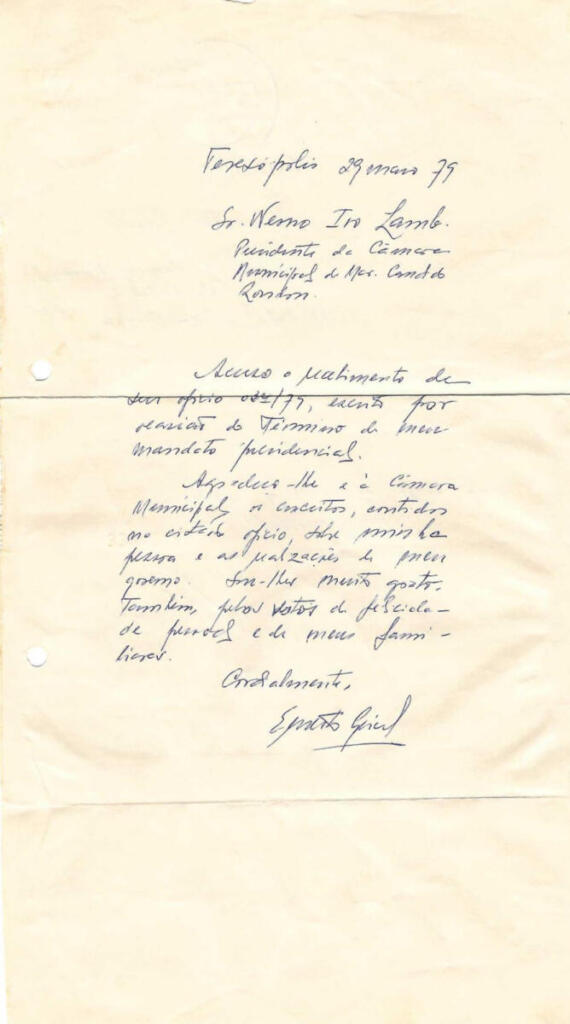 Teresópolis 29 março 79
Sr. Werno Ivo Lamb.
Presidente da Câmara
Municipal de Mar. Candido
Rondon.
Acuso o recebimento de
seu ofício /79, escrito por
ocasião do Término de meu
mandato presidencial.
Agradeço-lhe e à Câmara
Municipal os conceitos, contidos
no citado ofício, sobre minha
pessoa e as realizações de meu
governo. Sou-lhe muito grato,
também, pelos votos de felicida-
de pessoal e de meus fami-
liares.
Cordialmente,
Ernesto Geisel